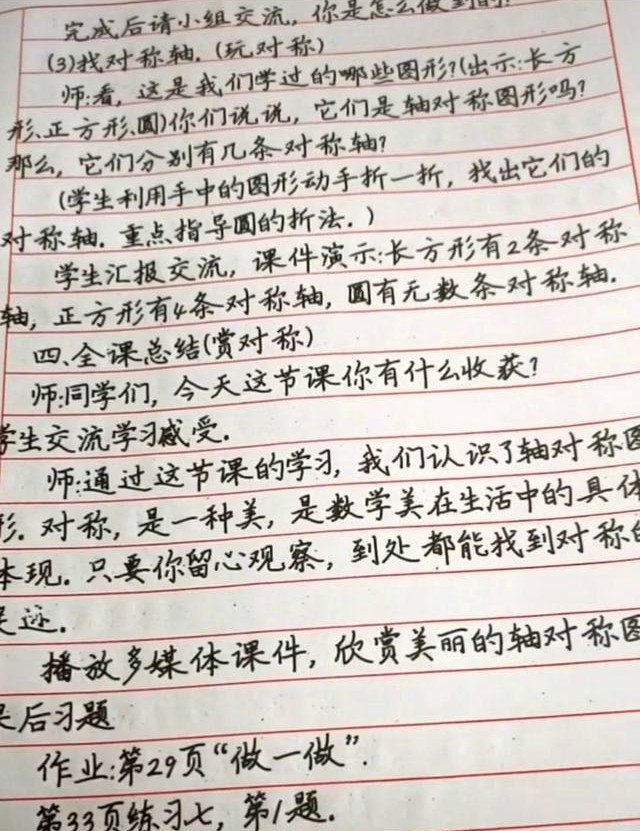 完成后请小组交流，你是怎么做到的?
(3)找对称轴.(玩对称)
师:看，这是我们学过的哪些图形?(出示:长方
形、正方形、圆)你们说说，它们是轴对称图形吗?
那么，它们分别有几条对称轴?
(学生利用手中的图形动手折一折，找出它们的
对称轴.重点指导圆的折法.)
学生汇报交流，课件演示:长方形有2条对称
轴，正方形有4条对称轴，圆有无数条对称轴.
四、全课总结(赏对称)
师:同学们，今天这节课你有什么收获?
学生交流学习感受.
师:通过这节课的学习，我们认识了轴对称图
形.对称，是一种美，是数学美在生活中的具体
体现.只要你留心观察，到处都能找到对称的
迹.
播放多媒体课件，欣赏美丽的轴对称图
后习题
作业:第29页“做一做”.
第33页练习七，第1题.